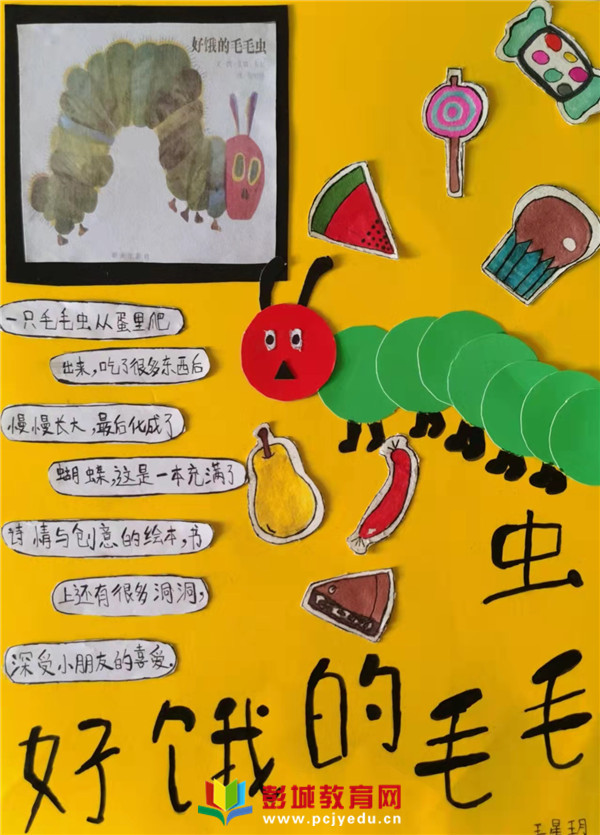 好饿的毛毛虫
一只毛毛虫从蛋里爬
出来,吃了很多东西后
慢慢长大,最后化成了
蝴蝶,这是一本充满了
诗情与创意的绘本,书
上还有很多洞洞,
深受小朋友的喜爱.
虫
好饿的毛毛
彭城教育网
www.pcjyedu.cn
王星玥